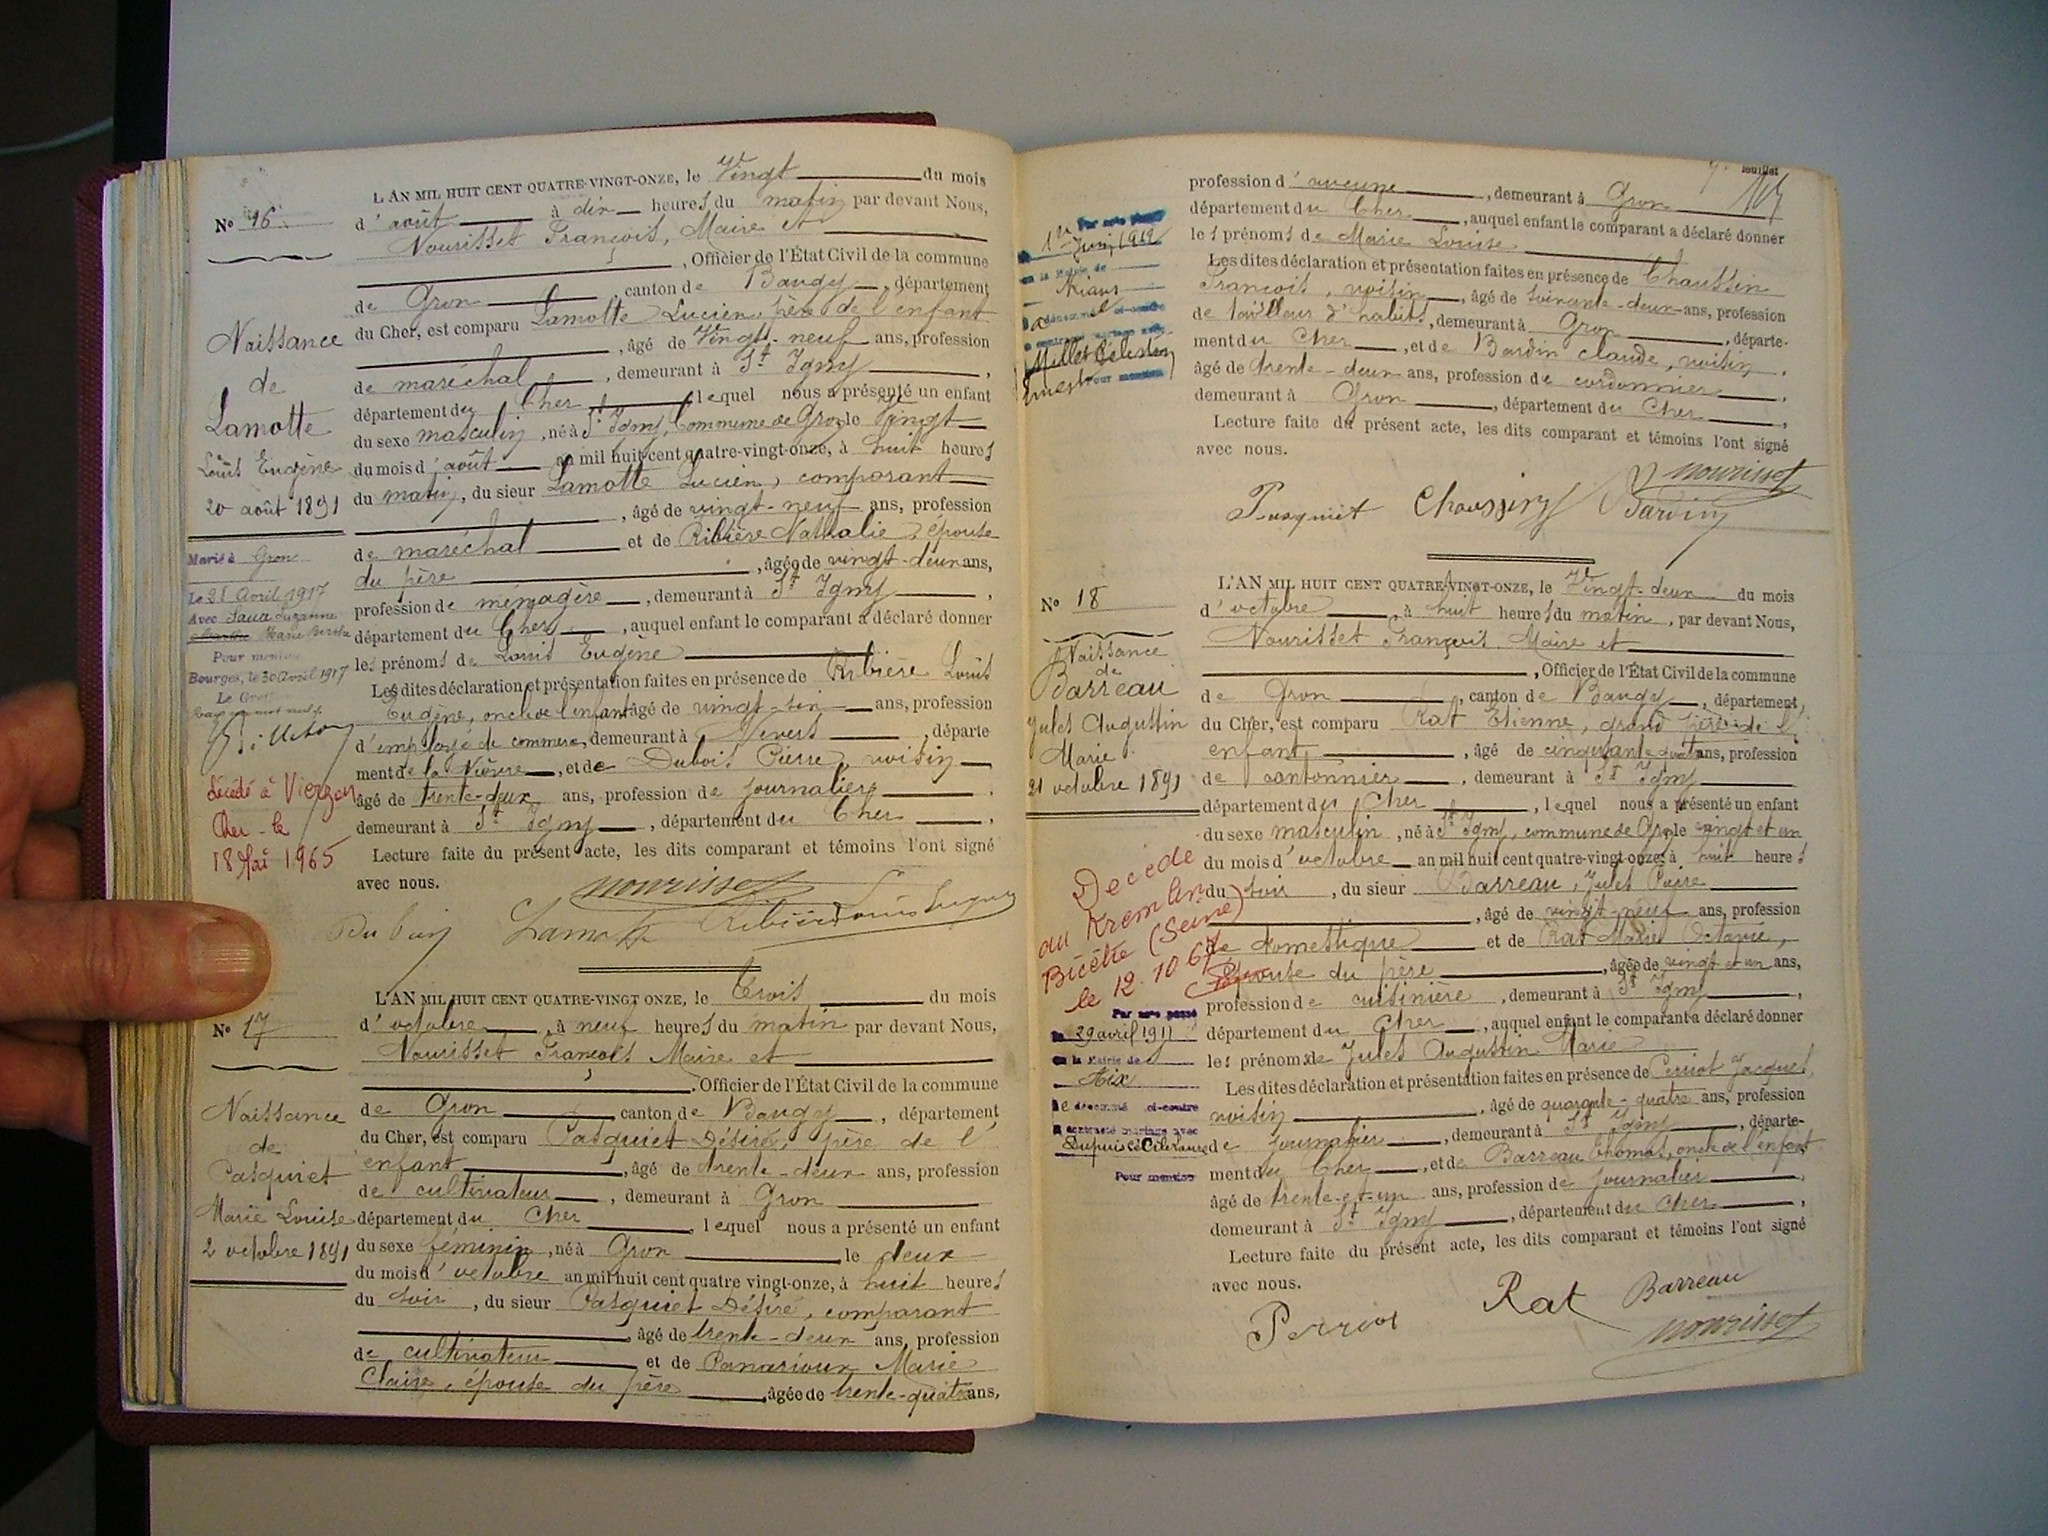 L'AN MIL HUIT CENT QUATRE-VINGT-ONZE, le Vingt du mois
d'août à dix heures du matin par devant Nous,
Nourisset François, Maire et
, Officier de l'État Civil de la commune
de Gron, canton de Baugy, département
du Cher, est comparu Lamotte Lucien, père de l'enfant
, âgé de Vingt-neuf ans, profession
de maréchal, demeurant à St Igny,
département du Cher lequel nous a présenté un enfant
du sexe masculin, né à St Igny, Commune de Gron le Vingt
du mois d'août an mil huit cent quatre-vingt-onze, à huit heures
du matin, du sieur Lamotte Lucien, comparant
, âgé de vingt-neuf ans, profession
de maréchal et de Ribière Nathalie, épouse
du père, âgée de vingt-deux ans,
profession de ménagère, demeurant à St Igny,
département du Cher, auquel enfant le comparant a déclaré donner
les prénoms de Louis Eugène
Les dites déclaration et présentation faites en présence de Ribière Louis
Eugène, oncle de l'enfant âgé de vingt-six ans, profession
d'employé de commerce, demeurant à Nevers, départe
ment de la Nièvre, et de Dubois Pierre, voisin
âgé de trente-deux ans, profession de journalier,
demeurant à St Igny, département du Cher,
Lecture faite du présent acte, les dits comparant et témoins l'ont signé
avec nous.
Nourisset
Dubois Lamotte Ribière Louis Eugène
No 16
Naissance
de
Lamotte
Louis Eugène
20 août 1891
Marié à Gron
Le 21 Avril 1917
Avec Sauce Suzanne
Marie Berthe
Pour mention
Bourges, le 30 avril 1917
Le Greffier
décédé à Vierzon
Cher - le
18 Mai 1965
L'AN MIL HUIT CENT QUATRE-VINGT ONZE, le trois du mois
d'octobre, à neuf heures du matin par devant Nous,
Nourisset François Maire et
, Officier de l'État Civil de la commune
de Gron canton de Baugy, département
du Cher, est comparu Pasquiet Désiré, père de l'
enfant, âgé de trente-deux ans, profession
de cultivateur, demeurant à Gron
département du Cher, lequel nous a présenté un enfant
du sexe féminin, né à Gron le deux
du mois d'octobre an mil huit cent quatre vingt-onze, à huit heures
du soir, du sieur Pasquiet Désiré, comparant
, âgé de trente-deux ans, profession
de cultivateur et de Panarioux Marie
Claire, épouse du père, âgée de trente-quatre ans,
No 17
Naissance
de
Pasquiet
Marie Louise
2 octobre 1891
feuillet
profession d'aucune, demeurant à Gron
département du Cher, auquel enfant le comparant a déclaré donner
les prénoms de Marie Louise
Les dites déclaration et présentation faites en présence de Chaussin
François, voisin, âgé de soixante-deux ans, profession
de tailleur d'habits, demeurant à Gron, départe-
ment du Cher, et de Bardin Claude, voisin,
âgé de trente-deux ans, profession de cordonnier,
demeurant à Gron, département du Cher,
Lecture faite du présent acte, les dits comparant et témoins l'ont signé
avec nous.
Nourisset
Pasquiet Chaussin Bardin
Par acte passé
le 1er Juin 1912
en la Mairie de
a dénommé ci-contre
a contracté mariage avec
Millet Célestin
Ernest Pour mention
L'AN MIL HUIT CENT QUATRE-VINGT-ONZE, le Vingt-deux du mois
d'octobre, à huit heures du matin, par devant Nous,
Nourisset François Maire et
, Officier de l'État Civil de la commune
de Gron, canton de Baugy, département,
du Cher, est comparu Rat Etienne, grand père de l'
enfant, âgé de cinquante quatre ans, profession
de cantonnier, demeurant à St Igny
département du Cher, lequel nous a présenté un enfant
du sexe masculin, né à St Igny, commune de Gron le vingt et un
du mois d'octobre an mil huit cent quatre-vingt-onze, à huit heures
du soir, du sieur Barreau, Jules
, âgé de vingt-neuf ans, profession
de domestique et de Rat Marie Octavie,
épouse du père, âgée de vingt et un ans,
profession de cuisinière, demeurant à St Igny,
département du Cher, auquel enfant le comparant a déclaré donner
les prénoms de Jules Augustin Marie
Les dites déclaration et présentation faites en présence de Perriot Jacques,
voisin, âgé de quarante-quatre ans, profession
de journalier, demeurant à St Igny, départe-
ment du Cher, et de Barreau Thomas, oncle de l'enfant
âgé de trente-et-un ans, profession de journalier,
demeurant à St Igny, département du Cher,
Lecture faite du présent acte, les dits comparant et témoins l'ont signé
avec nous.
Perriot Rat Barreau
Nourisset
No 18
Naissance
de
Barreau
Jules Augustin
Marie
21 octobre 1891
Décédé
au Kremlin
Bicêtre (Seine)
le 12.10.67
Par acte passé
le 29 avril 1911
en la Mairie de
Aix
le dénommé ci-contre
a contracté mariage avec
Dupuis
Pour mention